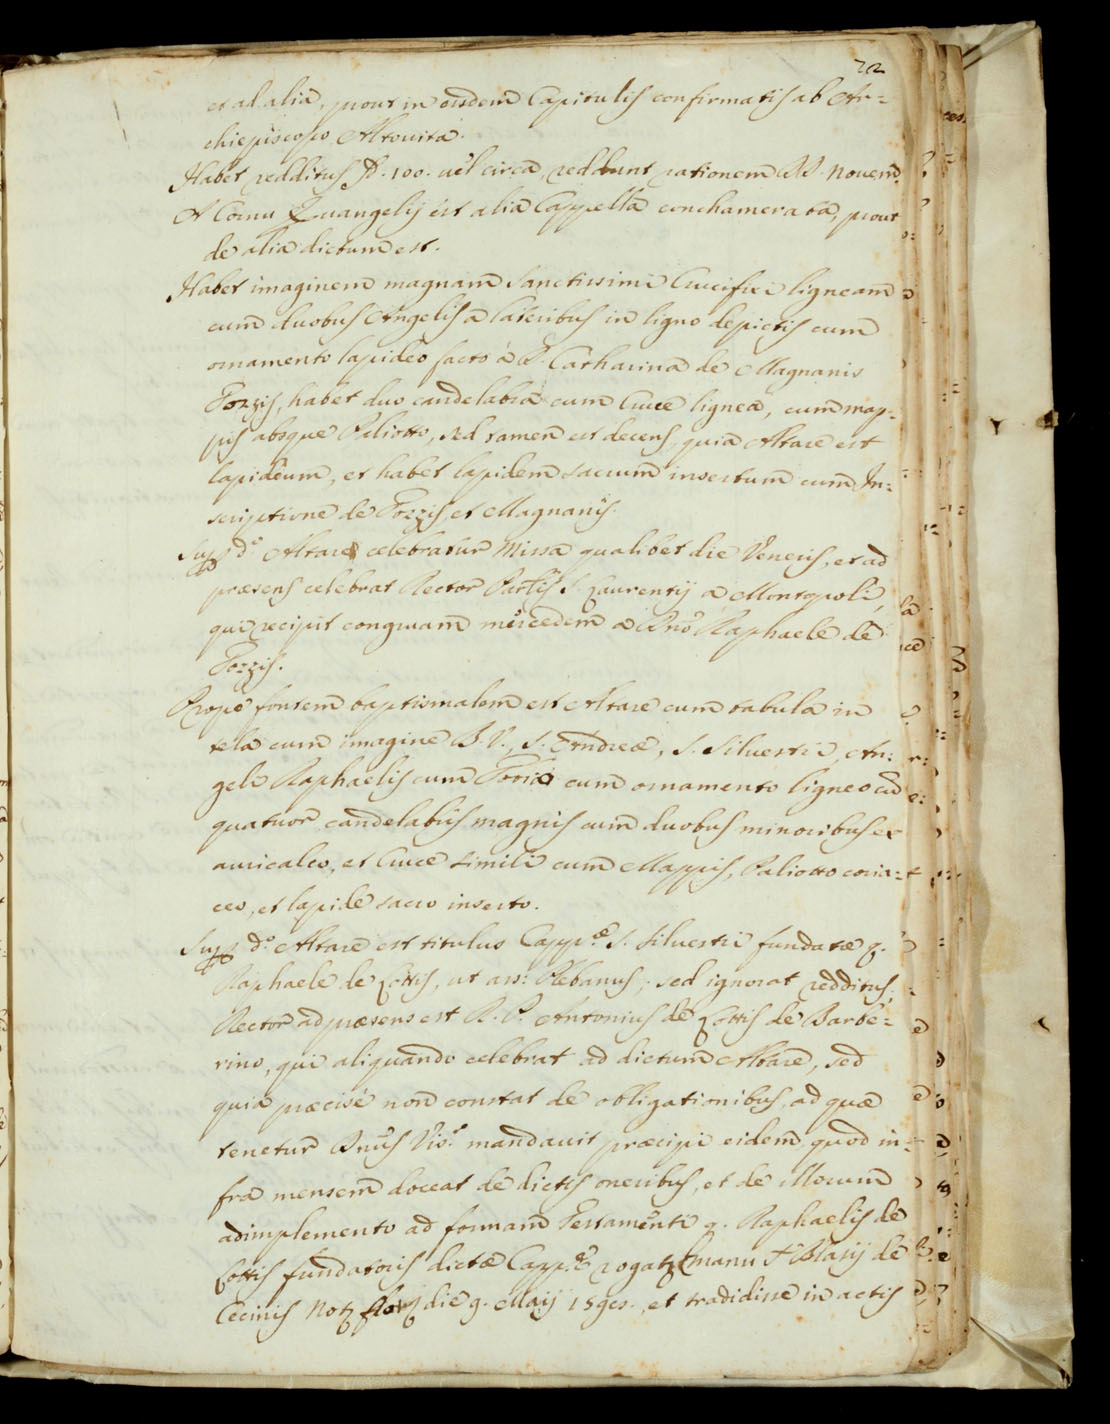 22
et ad alia, prout in eisdem Capitulis confirmatis ab Ar=
chiepiscopo Altovita.
Habet redditus 100. vel circa, reddunt rationem Novem.
A Cornu Evangelij est alia Cappella conchamerata, prout
de alia dictum est.
Habet imaginem magnam Sanctissimi Crucifixi ligneam
cum duobus Angelis a lateribus in ligno depictis cum
ornamento lapideo facto à D. Catharina de Magnanis
Pozzis, habet duo candelabra cum Cruce lignea, cum map=
pis absque Paliotto, sed tamen est decens, quia Altare est
lapideum, et habet lapidem sacrum insertum cum In=
scriptione de Pozzis, et Magnanis.
Supp d.º Altare celebratur Missa qualibet die Veneris, et ad
præsens celebrat Rector Par.lis S. Laurentij a Montopoli,
qui recipit congruam mercedem a Dno Raphaele de
Pozzis.
Prope fontem baptismalem est Altare cum tabula in
tela cum imagine B. V., S. Andreæ, S. Silvestri, An:
geli Raphaelis cum Tobia cum ornamento ligneo cū
quatuor candelabris magnis cum duobus minoribus ex
auricalco, et Cruce simili cum Mappis, Paliotto coria=
ceo, et lapide sacro inserto.
Supp d.º Altare est titulus Capp.æ S. Silvestri fundatæ q.
Raphaele de Cottis, ut ass: Plebanus, sed ignorat redditus;
Rector ad præsens est R. P. Antonius de Cottis de Barbe=
rino, qui aliquando celebrat ad dictum Altare, sed
quia præcise non constat de obligationibus, ad quæ
tenetur Dnus Vis.r mandavit præcipi eidem, quod in=
fra mensem doceat de dictis oneribus, et de illorum
adimplemento ad formam Testamenti q. Raphaelis de
Cottis fundatoris dictæ Capp.æ rogat manu Blasij de
Cecinis Not die 9. Maij et tradidisse in actis